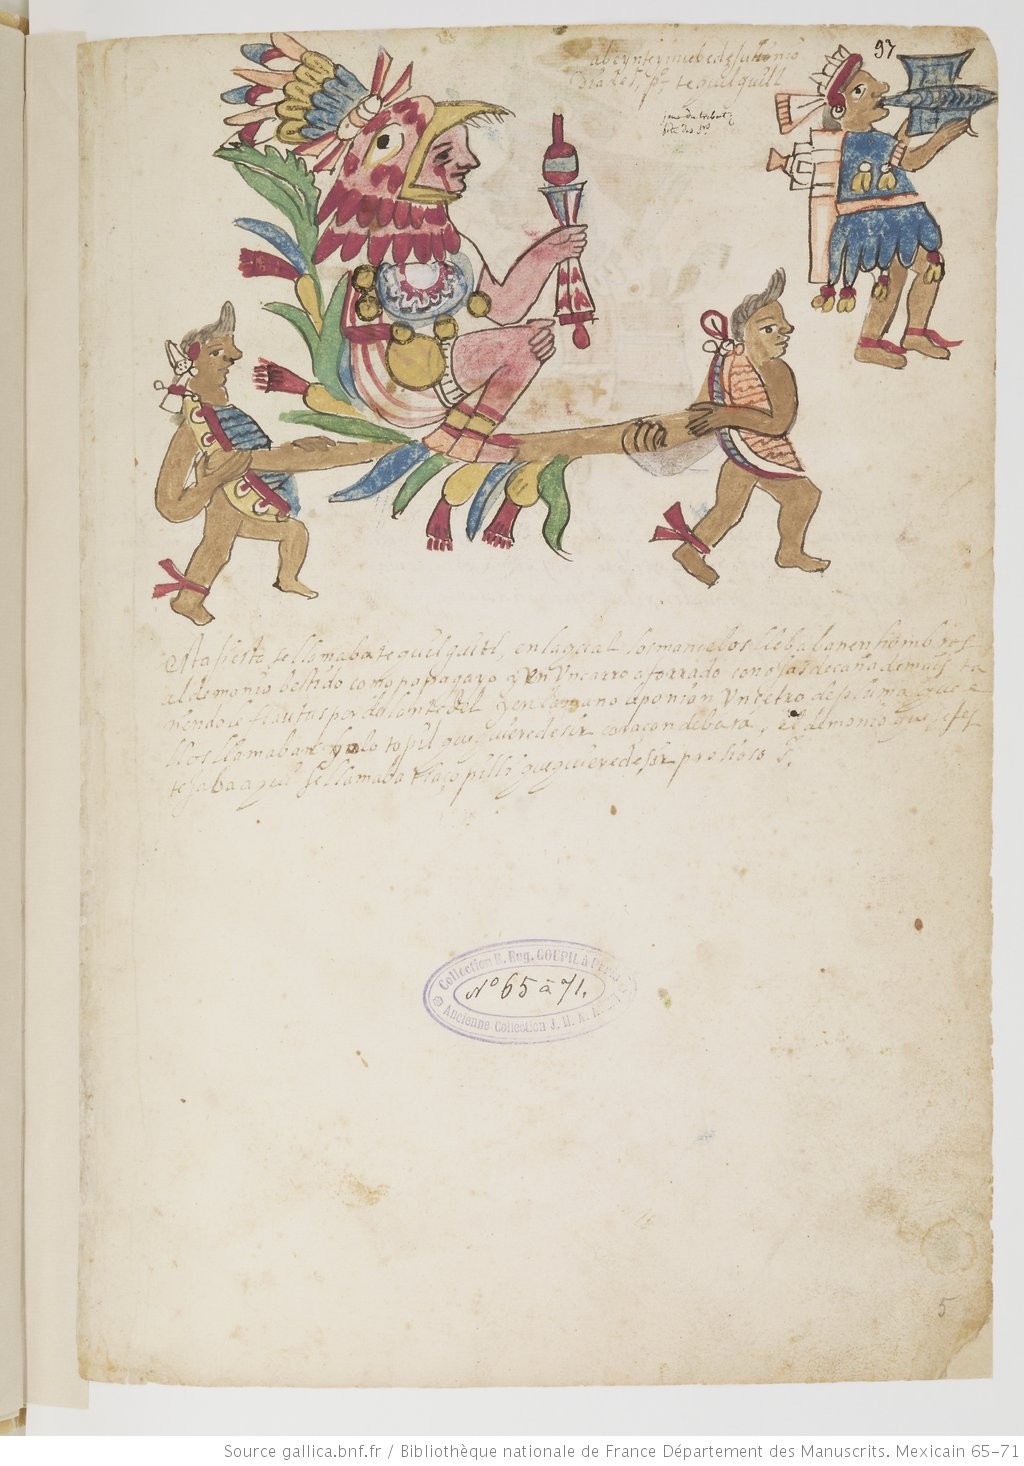 97
a beynte y nuebe de Junio
Dia de S. po tequelquitl
Esta fiesta se llamaba tequelquitl, en la qual los mancebos llebaban en hombros
al demonio bestido como papagayo y en un carro aforrado con ojas de caña de mais ta
ñendole flautas por delante del y en la mano le ponian un cetro de pluma que e
llos llamaban yolotopil que quiere decir coraçon de bara, el demonio que se fes
tejaba aqui se llamaba tlaçopilli que quiere desir presioso
Collection E. Eug. GOUPIL à PARIS
No 65 à 71.
Ancienne Collection J. M. A. AUBIN
5
Source gallica.bnf.fr / Bibliothèque nationale de France Département des Manuscrits. Mexicain 65-71